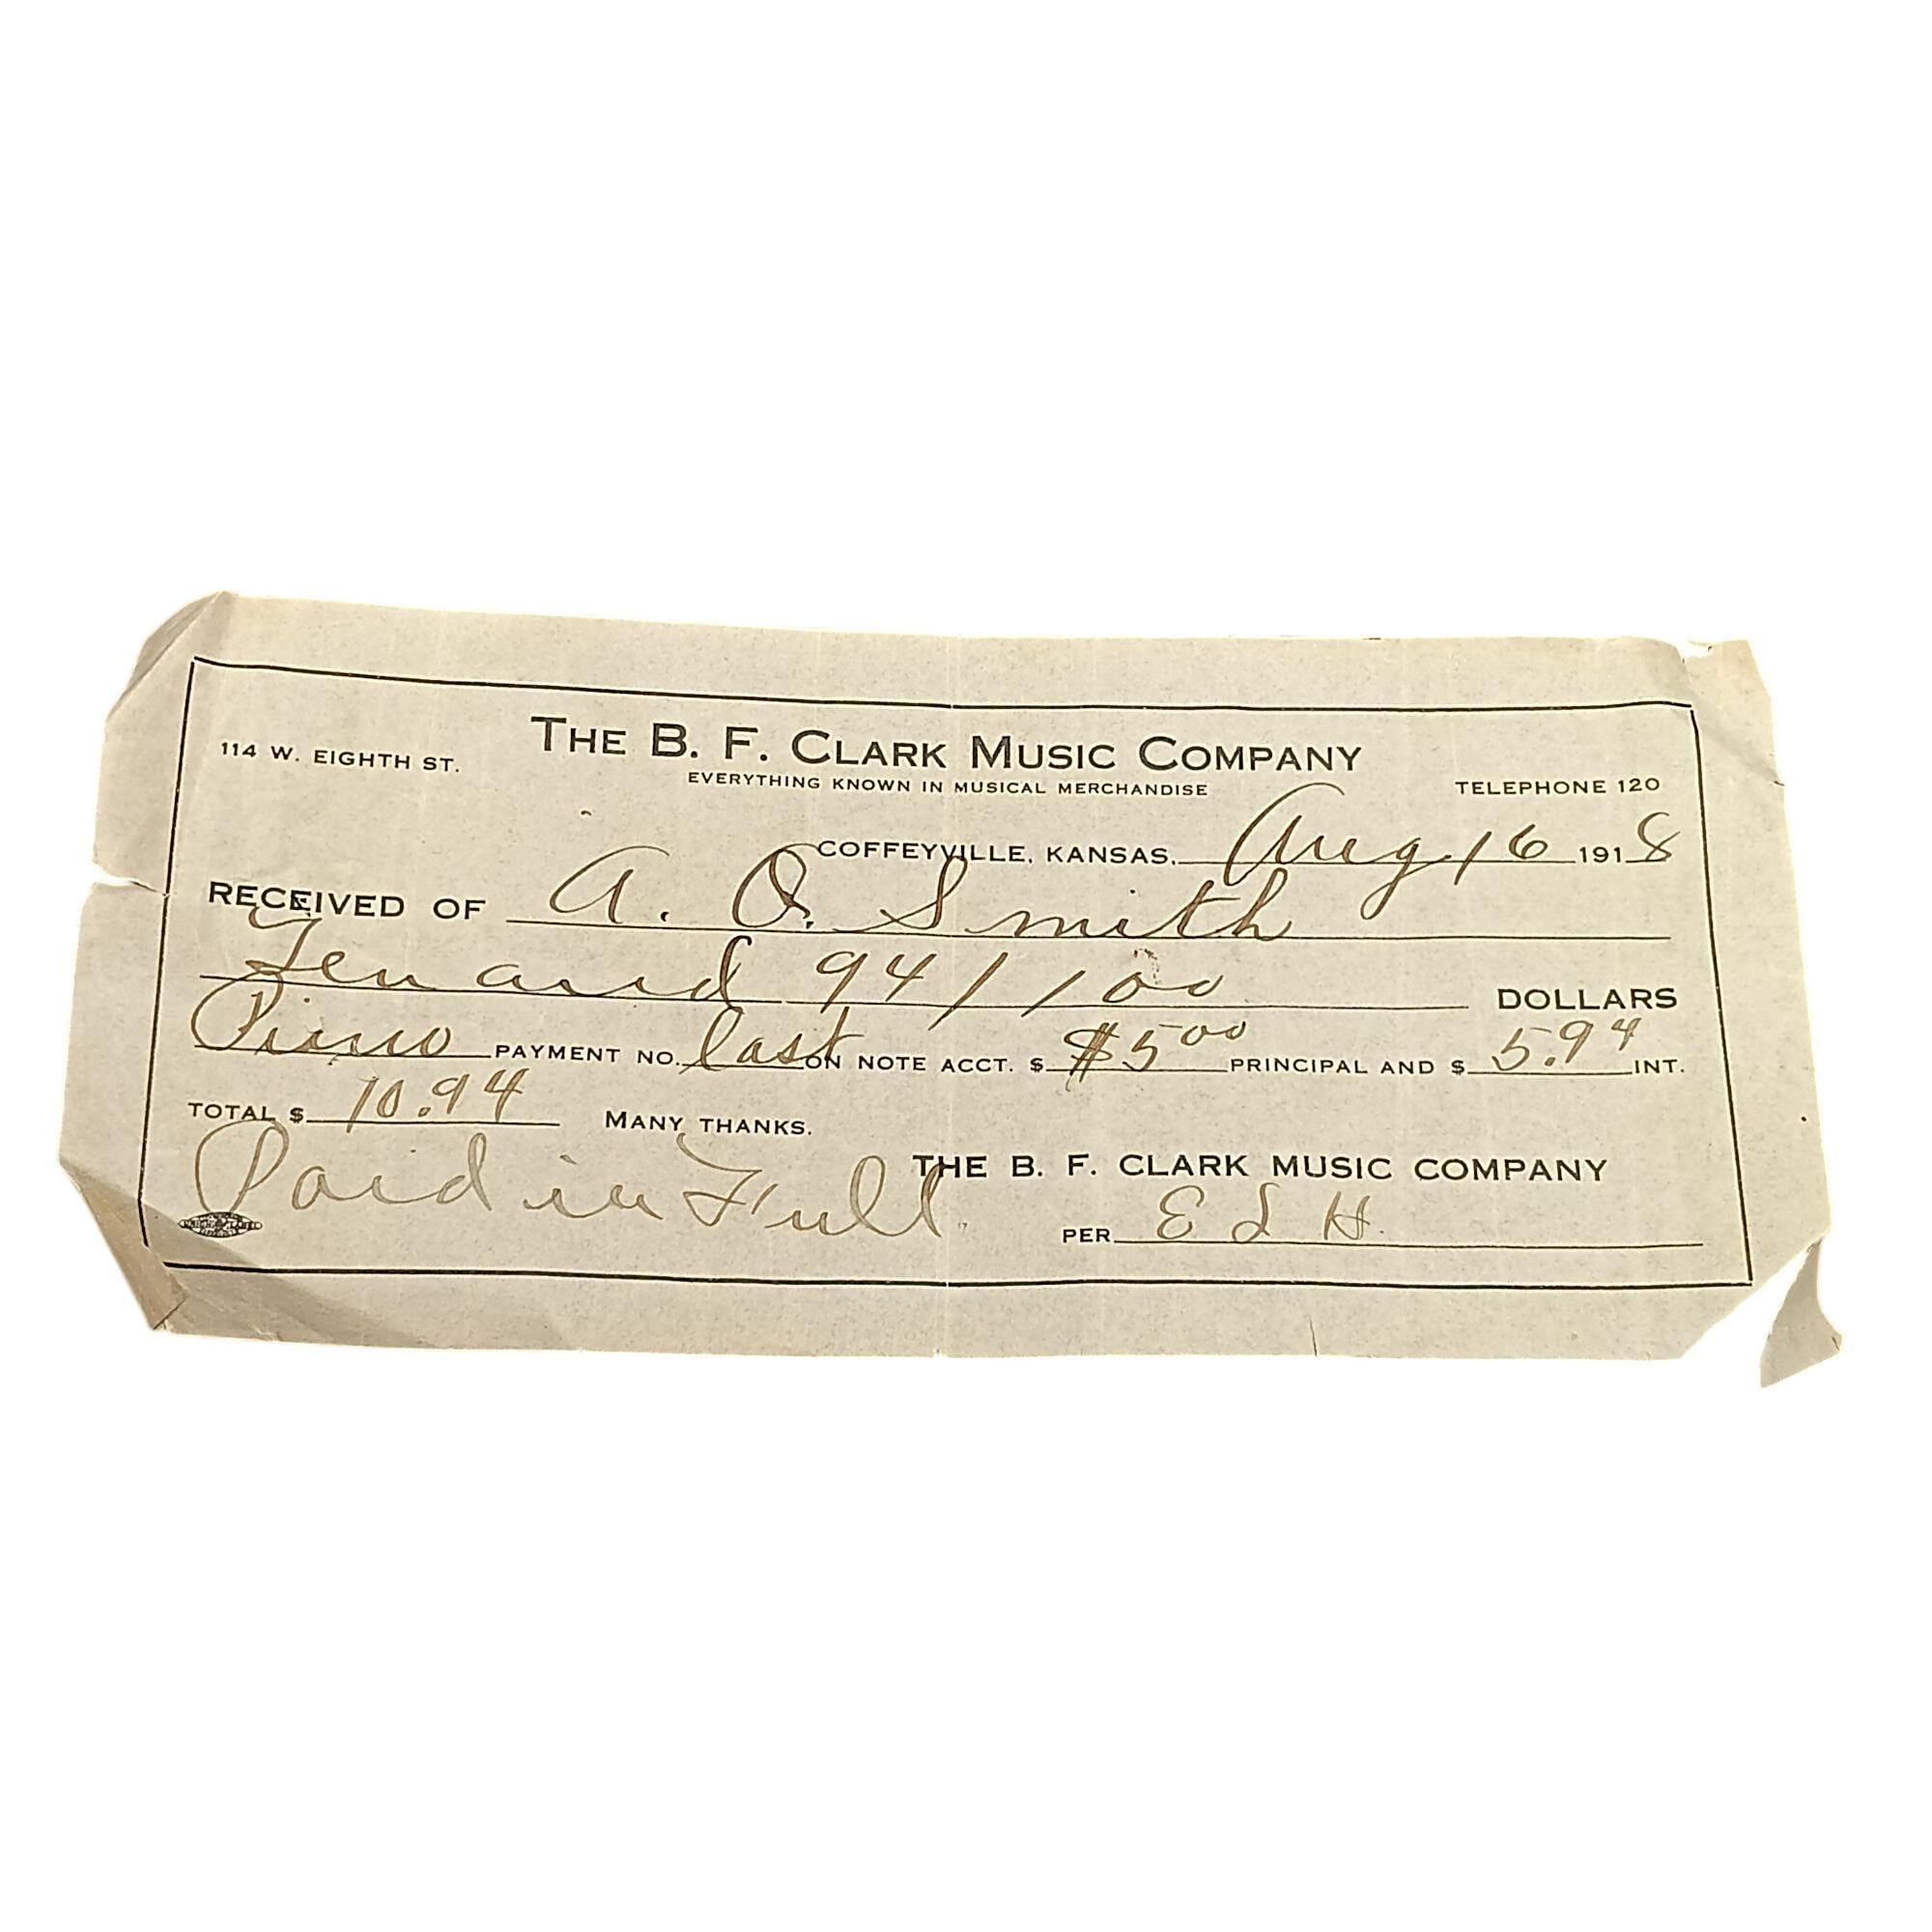 THE B. F. CLARK MUSIC COMPANY
114 W. EIGHTH ST.
EVERYTHING KNOWN IN MUSICAL MERCHANDISE
TELEPHONE 120
COFFEYVILLE, KANSAS, Aug 16 1918
RECEIVED OF A. O. Smith
Ten and 94/100 DOLLARS
Piano PAYMENT NO. last ON NOTE ACCT. $ $5 00 PRINCIPAL AND $ 5.94 INT.
TOTAL $ 10.94 MANY THANKS.
Paid in Full THE B. F. CLARK MUSIC COMPANY
PER E L H.